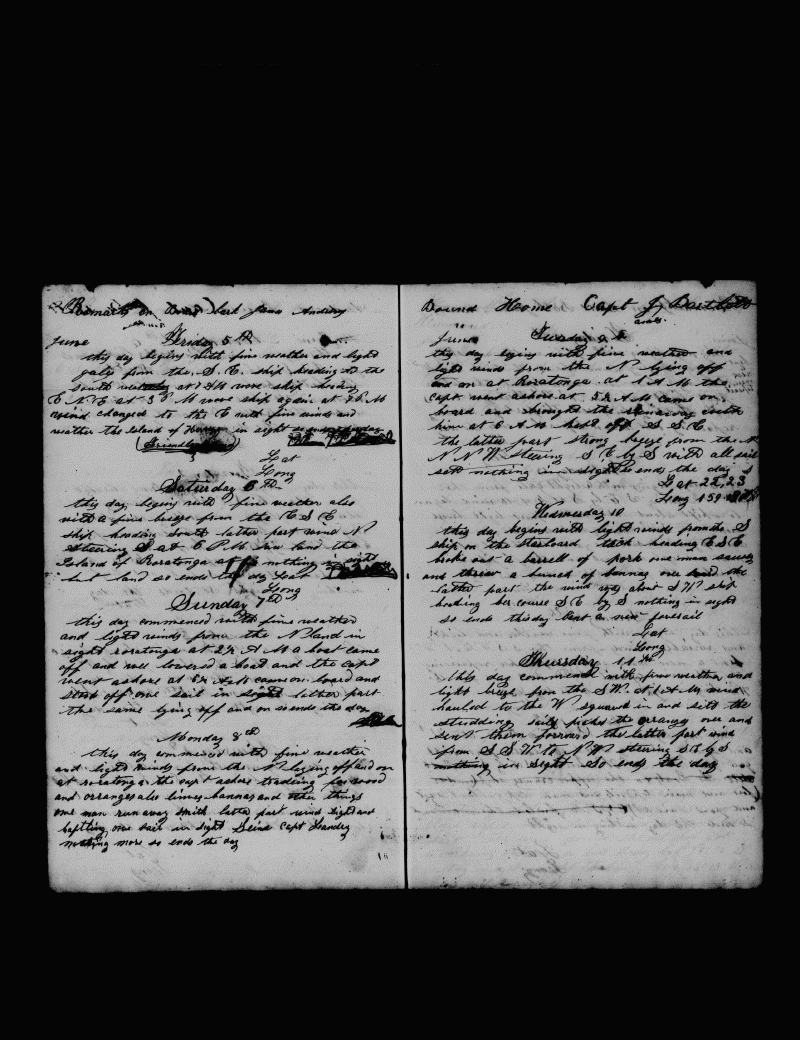 Remarks on Board Bark
June Friday 5th
this day begins with fine weather and light
gales from the S. E. ship heading to the
south at 1 AM wore ship heading
E N E at 3 M wore ship again at M
wind changed to the E with fine winds and
weather the Island of in sight
Lat
Long
Saturday 6th
this day begins with fine weather also
with a fine breeze from the E S E
ship heading South latter part wind N
steering S at 6 P.M saw land the
Island of Roratonga nothing in sight
but land so ends the day Lat
Long
Sunday 7th
this day commenced with fine weather
and light winds from the N land in
sight roratonga at 2½ A M a boat came
off and wee lowered a boat and the capt
went ashore at A M came on board and
stood off one sail in sight latter part
the same lying off and on so ends the day
Monday 8th
this day commenced with fine weather
and light winds from the N laying off and on
at roratonga the capt ashore trading for wood
and orranges also limes bannas and other things
one man run away smith latter part wind light and
baffling one sail in sight Capt
nothing more so ends the day
Bound Home Capt J Bartlett
June Tuesday 9th
this day begins with fine weather and
light winds from the N lying off
and on at Roratonga at 1 A M the
capt went ashore at 5½ A M came on
board and brought the runaway with
him at 6 A M kept off S S E
the latter part strong breeze from the N
N N W steering S E by S with all sail
set nothing in sight so ends the day
Lat 22,23
Long 159
Wednesday 10
this day begins with light winds from the S
ship on the starboard tack heading E S E
broke out a barrell of pork one man
and threw a bunch of bannas over board the
latter part the wind was about S W ship
heading her course S E by S nothing in sight
so ends this day bent a new foresail
Lat
Long
Thursday 11th
this day commenced with fine weather and
light breeze from the SW. At 1 A.M. wind
hauled to the W squared in and sett the
studding sails picks the orranges over and
sent them forward the latter part wind
from S S W to N W steering S E by S
nothing in sight So ends the day